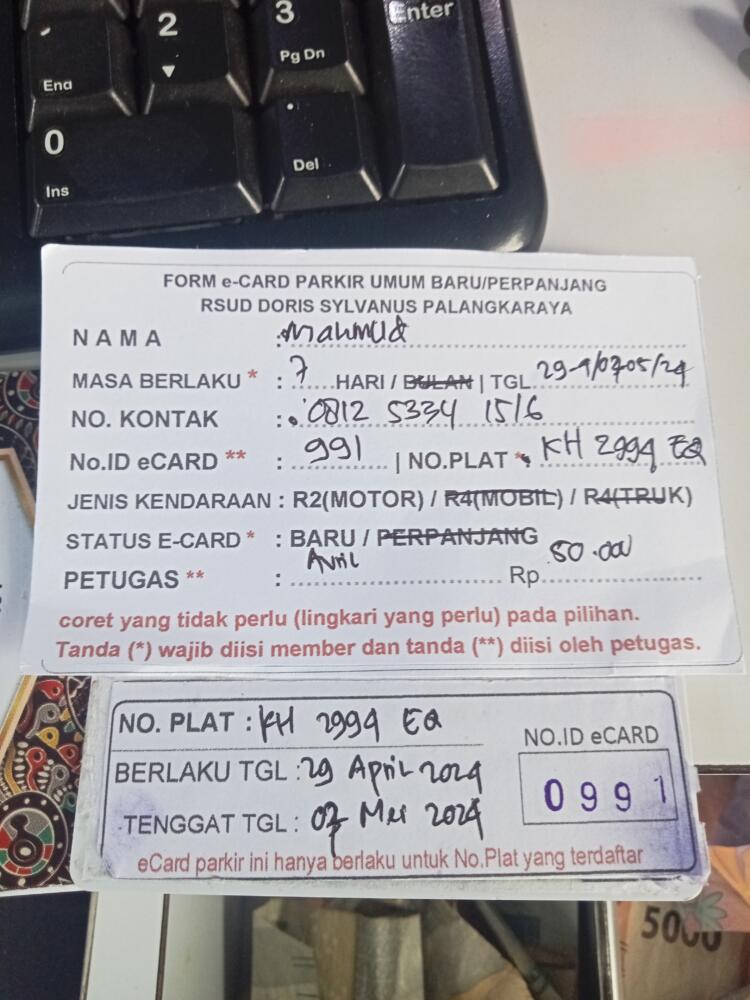 2
3
Enter
End
▼
Pg Dn
0
.
Ins
Del
FORM e-CARD PARKIR UMUM BARU/PERPANJANG
RSUD DORIS SYLVANUS PALANGKARAYA
NAMA : Mahmud
MASA BERLAKU * : 7 HARI / BULAN | TGL 29-4/07-05/24
NO. KONTAK : 0812 5334 1516
No.ID eCARD ** : 991 | NO.PLAT * KH 2994 EQ
JENIS KENDARAAN : R2(MOTOR) / R4(MOBIL) / R4(TRUK)
STATUS E-CARD * : BARU / PERPANJANG
PETUGAS ** : Avril Rp 50.000
coret yang tidak perlu (lingkari yang perlu) pada pilihan.
Tanda (*) wajib diisi member dan tanda (**) diisi oleh petugas.
NO. PLAT : KH 2994 EQ
NO.ID eCARD
BERLAKU TGL : 29 April 2024
0991
TENGGAT TGL : 07 Mei 2024
eCard parkir ini hanya berlaku untuk No.Plat yang terdaftar
5000